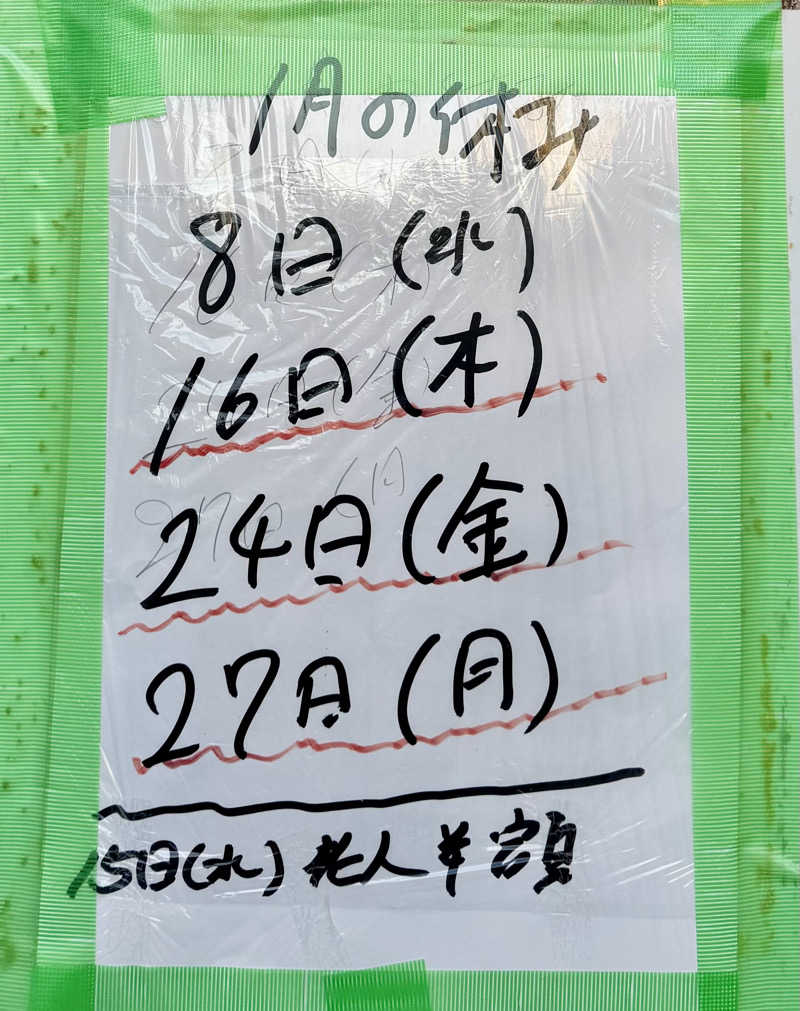 1月の休み
8日(水)
16日(木)
24日(金)
27日(月)
15日(水)老人半額